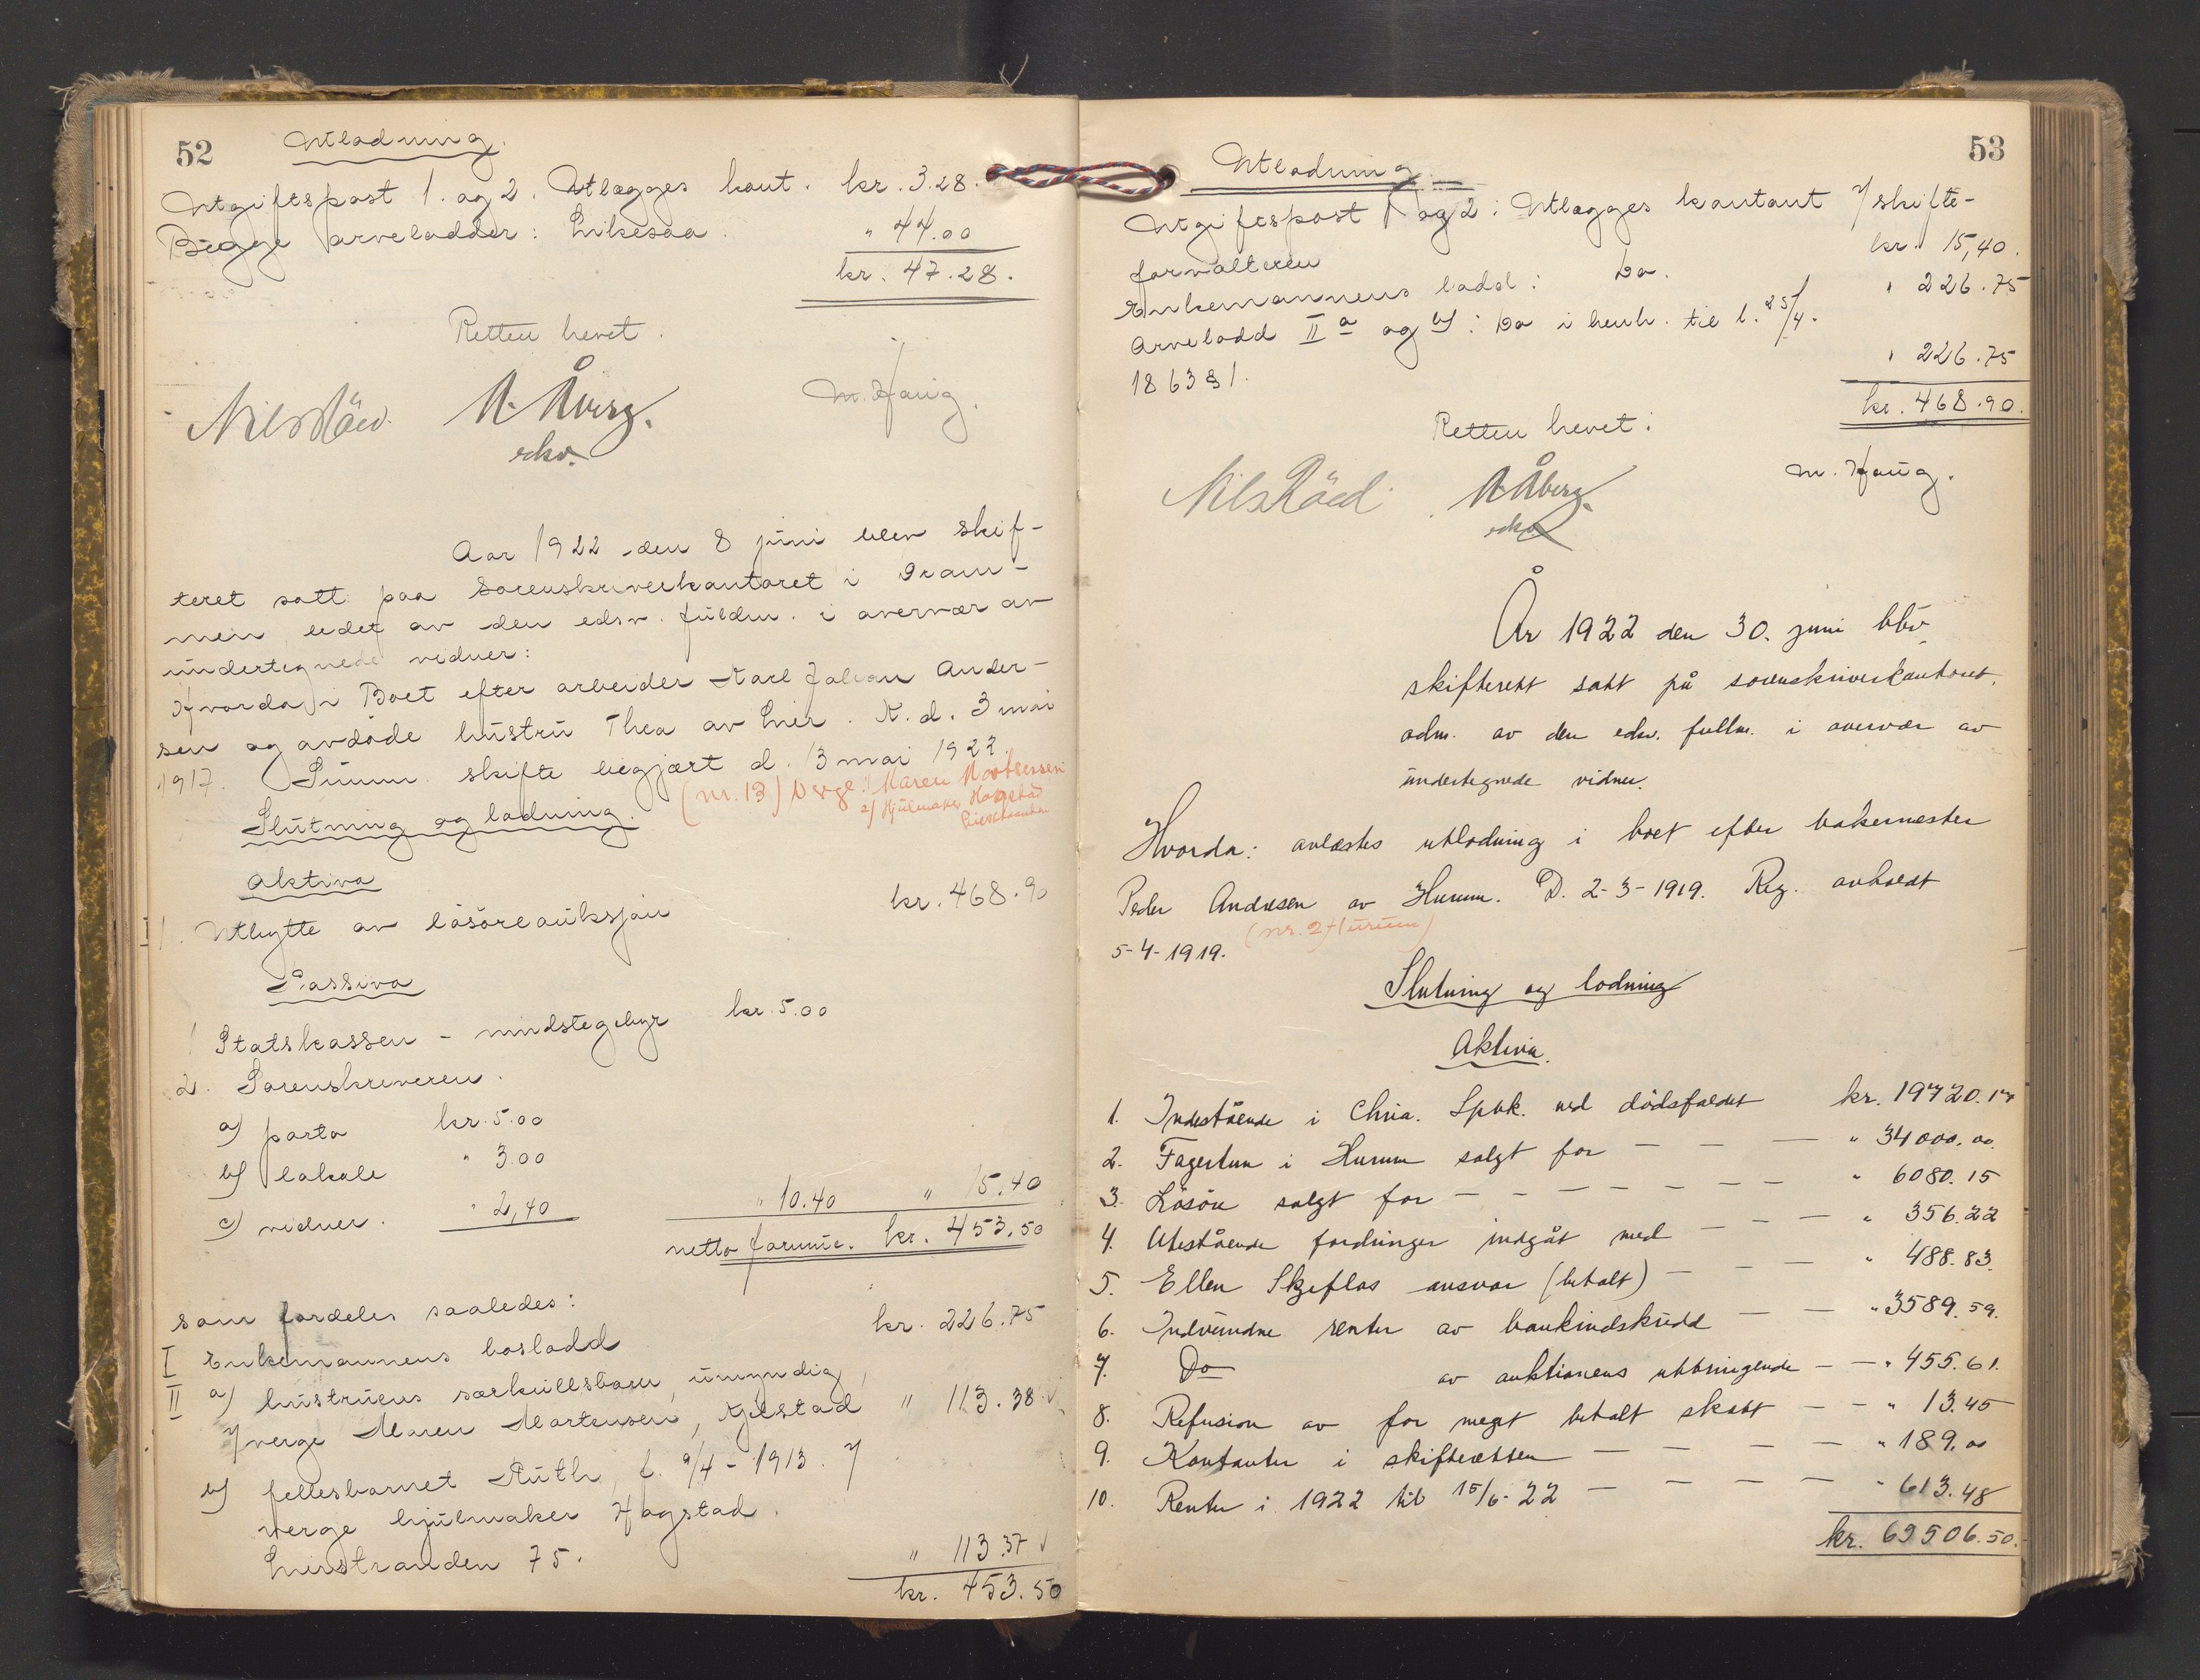 52
Utlodning.
Utgiftspost 1. og 2. Utlægges kont. kr. 3.28.
Begge arvelodder: Likesaa. " 44.00
kr. 47.28.
Retten hevet.
Nils Röed A. Åberg. M. Haug.
edsv.
Aar 1922 den 8 juni blev skif-
teret satt paa sorenskriverkontoret i Dram-
men ledet av den edsv. fuldm. i overvær av
undertegnede vidner:
Hvorda i Boet efter arbeider Karl Johan Ander-
sen og avdöde hustru Thea av Lier. K. d. 3 mai
1917. Summ. skifte begjært d. 13 mai 1922.
(nr. 13) Verge: 1/ Maren Mortensen
2/ Hjulmaker Hagstad
Lierstranden
Slutning og lodning.
Aktiva
1. Utbytte av lösöreauksjon kr. 468.90
Passiva
1 Statskassen - mindstegebyr kr. 5.00
2. Sorenskriveren.
a) porto kr. 5.00
b) lokale " 3.00
c) vidner. " 2,40 " 10.40 " 15.40
netto formue. kr. 453.50
som fordeles saaledes:
I Enkemannens boslodd kr. 226.75
II a) hustruens særkullsbarn, umyndig,
7/verge Maren Mortensen, Kjelstad " 113.38
b) fellesbarnet Ruth, f. 9/4 - 1913. 7/
verge hjulmaker Hagstad.
Lierstranden 75. " 113.37
kr. 453.50
53
Utlodning
Utgiftspost 1 og 2: Utlægges kontant 7/skifte-
forvalteren kr. 15,40.
Enkemannens lodd: Do. " 226.75
Arvelodd II a og b): Do i henh. til l. 25/4.
1863 § 1. " 226.75
kr. 468.90.
Retten hevet:
Nils Röed A. Åberg. M. Haug.
edsv.
År 1922 den 30. juni blev
skifterett satt på sorenskriverkontoret,
adm. av den edsv. fullm. i overvær av
undertegnede vidner.
Hvorda: avlæstes utlodning i boet efter bakermester
Peder Andresen av Hurum. D. 2-3-1919. Reg. avholdt
5-4-1919. (nr. 2 Hurum)
Slutning og lodning
Aktiva.
1. Indestående i Chria. Spbk. ved dödsfaldet kr. 19720.17
2. Fagertun i Hurum solgt for — — — " 34000.00.
3. Lösöre solgt for — — — — — — — " 6080.15
4. Utestående fordringer indgåt med — — — " 356.22
5. Ellen Skjeflos ansvar (betalt) — — — " 488.83.
6. Indvundne renter av bankindskudd — — " 3589.59.
7. Do av auktionens utbringende — — " 455.61.
8. Refusion av for meget betalt skatt — — " 13.45
9. Kontanter i skifteretten — — — — " 189.00
10. Renter i 1922 til 15/6-22 — — — — " 613.48
kr. 65506.50.